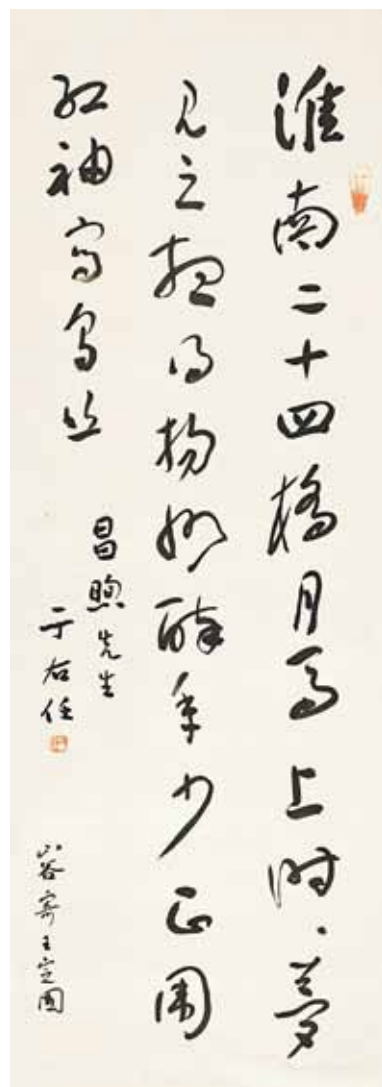 淮南二十四橋月馬上時々夢
見之想得揚州醉年少正圍
紅袖寫烏絲
昌煦先生
于右任
山谷寄王定國